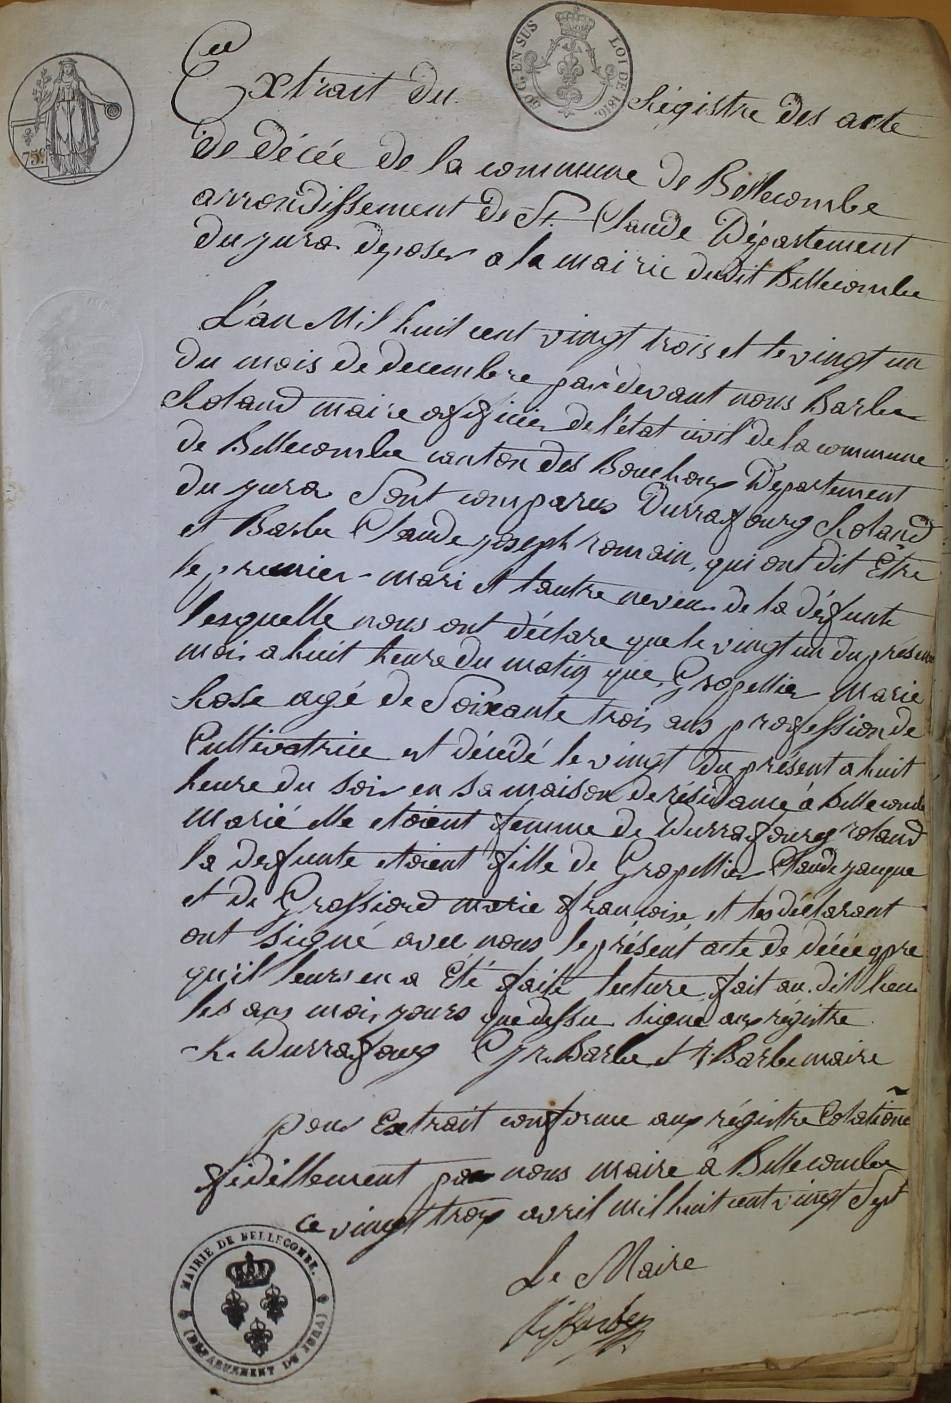 75c
50 C. EN SUS
LOI DE 1816.
Extrait du Régistre des acte
de décée de la commune de Bellecombe
arrondissement de St. Claude Département
du jura deposer a la mairie dudit Bellecombe
L'an Mil huit cent vingt trois et le vingt un
du mois de decembre par devant nous Barbe
Roland maire officier de l'état civil de la commune
de Bellecombe canton des Bouchoux Département
du jura Sont comparus Durrafourg Roland
et Barbe Claude joseph romain, qui ont dit Etre
le premier mari et l'autre neveu de la défunte
lesquelle nous ont déclare que le vingt un du présent
mois a huit heure du matin que Gropellier Marie
Rose agé de Soixante trois ans profession de
Cultivatrice est décédé le vingt du présent a huit
heure du soir en sa maison de résidance à Bellecombe
Marié elle etoient femme de Durrafourg roland
la defunte etoient fille de Gropellier Claude jauque
et de Grossiord marie francoise et les déclarant
ont signé avec nous le présent acte de décée apre
qu'il leurs en a Eté faite lecture fait au dit lieu
les ans mois jours que dessu signé aux régistre
R. Durrafourg C j r. Barbe et r. Barbe maire
pour Extrait conforme aux régistre Colationé
fidellement par nous maire à Bellecombe
ce vingt trois avril mil huit cent vingt Sept
Le Maire
MAIRIE DE BELLECOMBE.
(DÉPARTEMENT DU JURA)